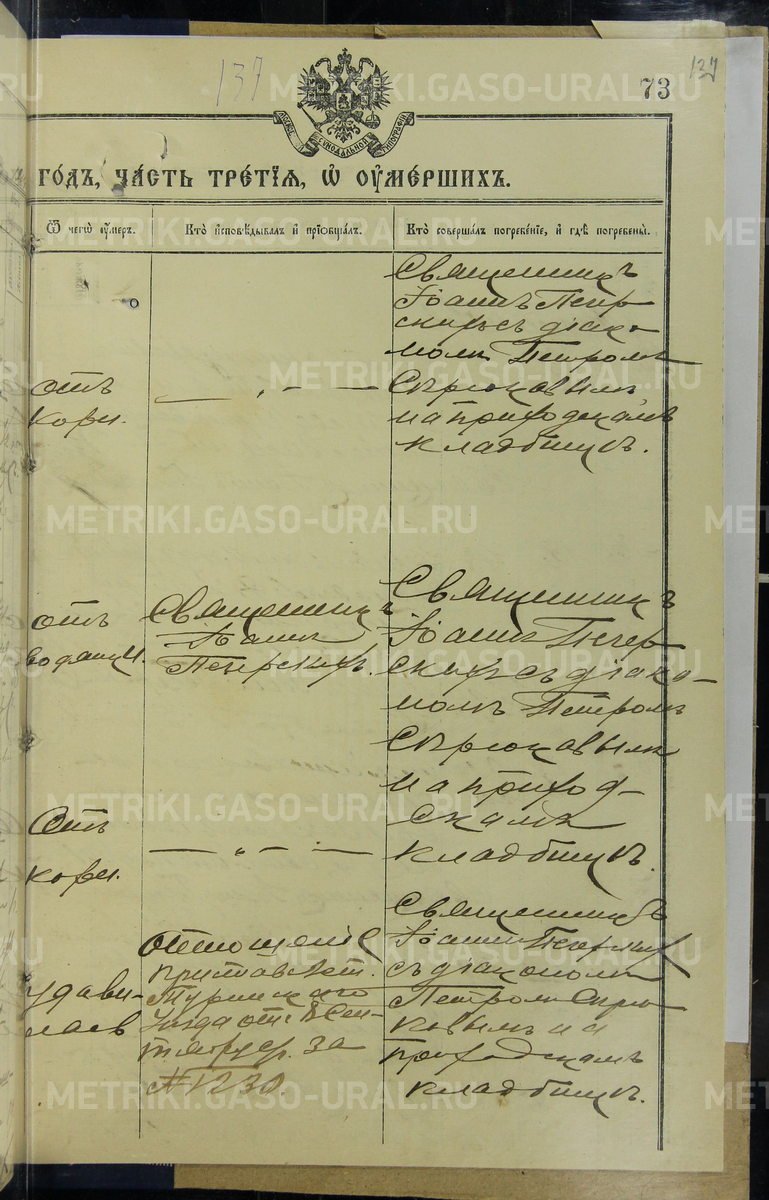 137
137
73
METRIKI.GASO-URAL.RU
ГОДЪ, ЧАСТЬ ТРЕТІЯ, Ѡ ОУМЕРШИХЪ.
Ѿ чегѡ оумеръ.
Кто исповѣдывалъ и пріобщалъ.
Кто совершалъ погребеніе, и гдѣ погребены.
отъ
кори.
Священникъ
Іоаннъ Печер
скихъ съ діако
номъ Петромъ
Сѣрюковымъ
на приходскомъ
кладбищѣ.
отъ
водянки.
Священникъ
Іоаннъ
Печерскихъ.
Священникъ
Іоаннъ Печер
скихъ съ діако-
номъ Петромъ
Сѣрюковымъ
на приход-
скомъ
кладбищѣ.
Отъ
кори.
удави-
лась
отношеніе
пристава
Туринскаго
уѣзда отъ
за
№ 1230.
Священникъ
Іоаннъ Печерскихъ
съ діакономъ
Петромъ Сѣрю
ковымъ на
приходскомъ
кладбищѣ.